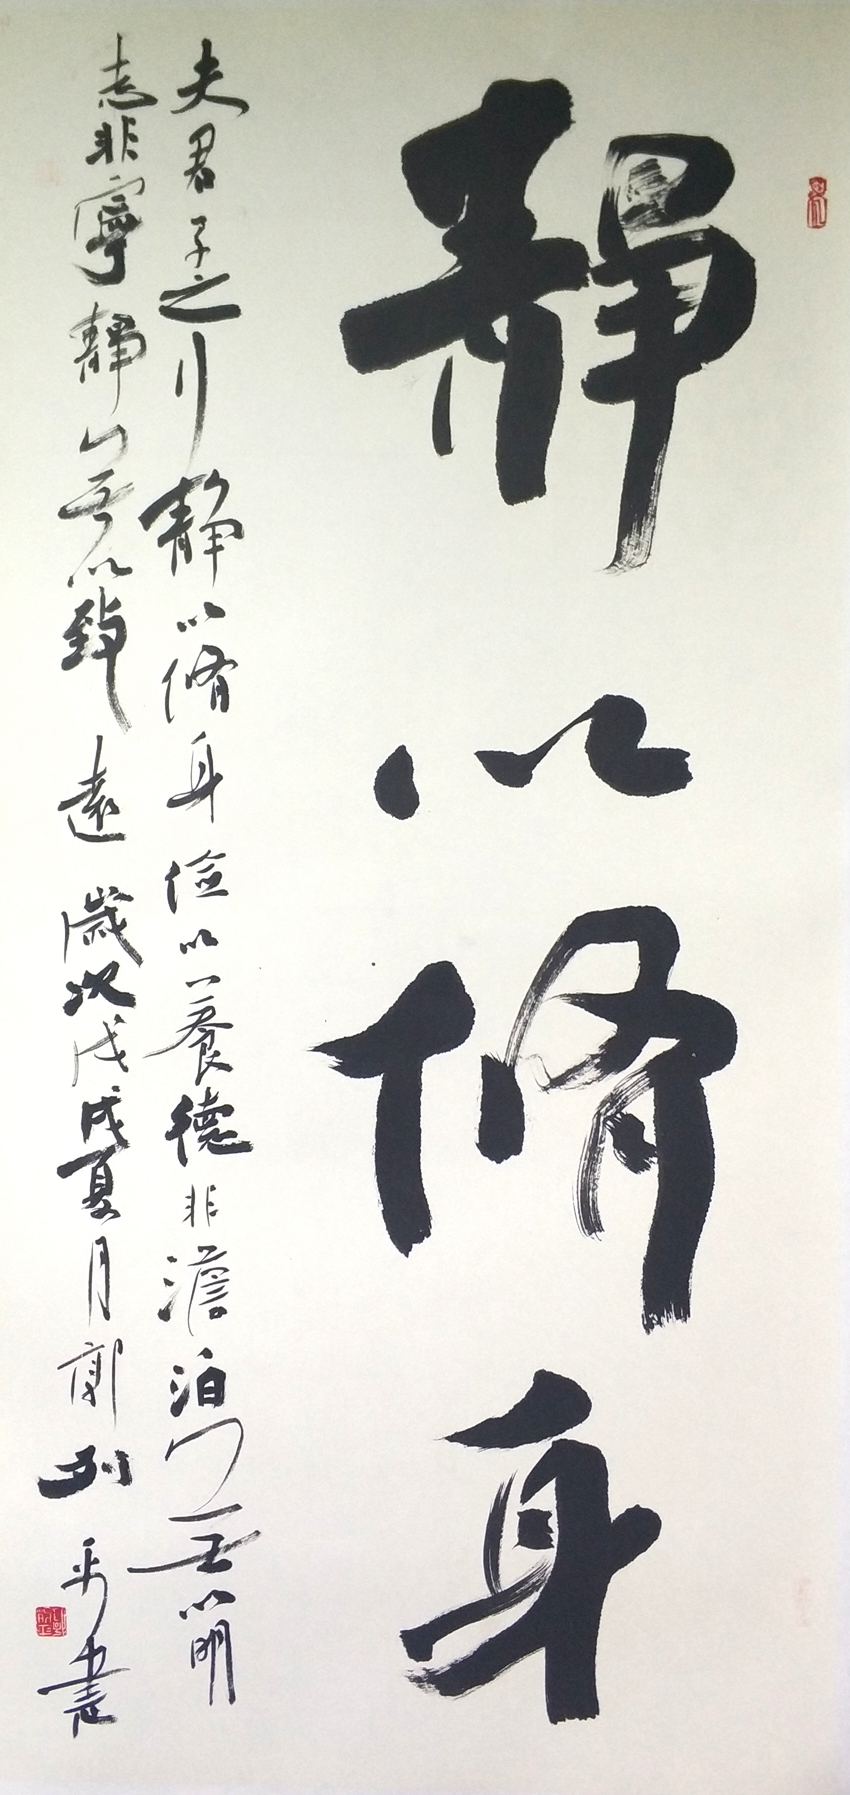 靜以脩身
夫君子之行靜以脩身儉以養德非澹泊無以明
志非寧靜無以致遠 歲次戊戌夏月郭列平書